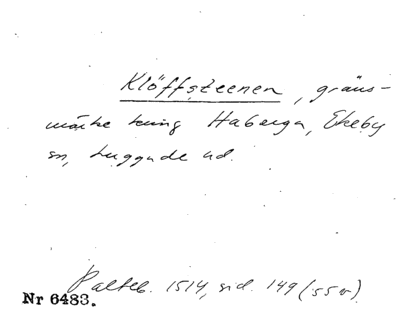 Klöffsteenen, gräns-
märke kring Haberga, Ekeby
sn, Luggude hd.
Palteb. 1514, sid. 149 (55v)
Nr 6483.